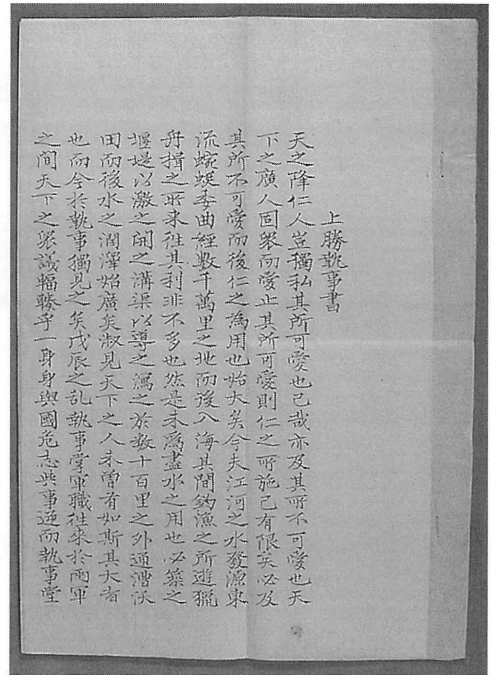 上勝執事書
天之降仁人豈獨私其所可愛也已哉亦及其所不可愛也天
下之廣人固衆而愛止其所可愛則仁之所施已有限矣必及
其所不可愛而後仁之為用也始大矣今夫江河之水發源東
流蜿蜒委曲經數千萬里之地而後入海其間釣漁之所遊獵
舟揖之所来往其利非不多也然是未為盡水之用也必築之
堰堤以激之開之溝渠以導之瀉之於数十百里之外通漕沃
田而後水之潤澤始廣矣淑見天下之人未曽有如斯其大者
也而今於執事獨見之矣戊辰之乱執事掌軍職往来於兩軍
之間天下之衆議輻輳乎一身身與國危志與事逆而執事堂